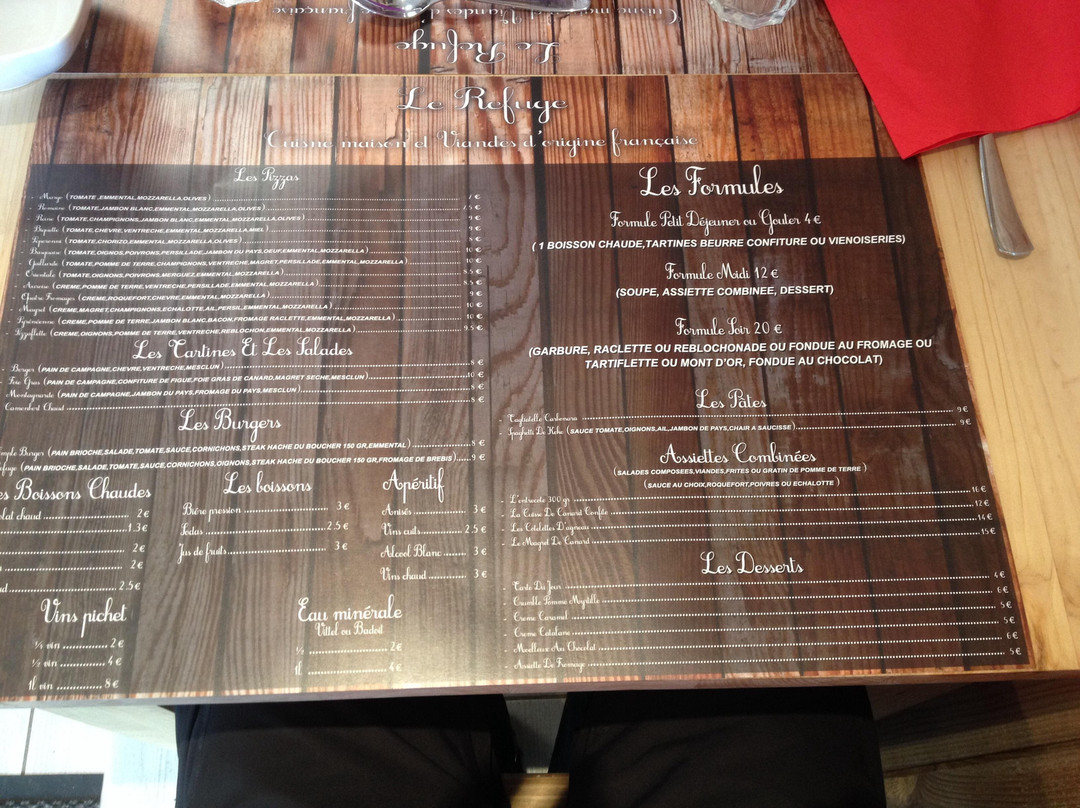 Le Refuge
Le Refuge
Cuisne maison et Viandes d'origine française
Les Pizzas
- Margo (TOMATE ,EMMENTAL,MOZZARELLA,OLIVES) 7 €
- Romaine (TOMATE,JAMBON BLANC,EMMENTAL,MOZZARELLA,OLIVES) 9 €
- Reine (TOMATE,CHAMPIGNONS,JAMBON BLANC,EMMENTAL,MOZZARELLA,OLIVES) 9 €
(TOMATE,CHEVRE,VENTRECHE,EMMENTAL,MOZZARELLA,MIEL) 9 €
(TOMATE,CHORIZO,EMMENTAL,MOZZARELLA,OLIVES)
(TOMATE,OIGNOS,POIVRONS,PERSILLADE,JAMBON DU PAYS,OEUF,EMMENTAL,MOZZARELLA) 10 €
(TOMATE,POMME DE TERRE,CHAMPIGNONS,VENTRECHE,MAGRET,PERSILLADE,EMMENTAL,MOZZARELLA) 10 €
- Orientale (TOMATE,OIGNONS,POIVRONS,MERGUEZ,EMMENTAL,MOZZARELLA) 8.5 €
(CREME,POMME DE TERRE,VENTRECHE,PERSILLADE,EMMENTAL,MOZZARELLA) 8.5 €
- Quatre Fromages (CREME,ROQUEFORT,CHEVRE,EMMENTAL,MOZZARELLA) 9 €
- Magret (CREME,MAGRET,CHAMPIGNONS,ECHALOTTE,AIL,PERSIL,EMMENTAL,MOZZARELLA) 10 €
- Pyrénéenne (CREME,POMME DE TERRE,JAMBON BLANC,BACON,FROMAGE RACLETTE,EMMENTAL,MOZZARELLA) 10 €
- Pizzaflette (CREME,OIGNONS,POMME DE TERRE,VENTRECHE,REBLOCHON,EMMENTAL,MOZZARELLA) 9.5 €
Les Tartines Et Les Salades
- Berger (PAIN DE CAMPAGNE,CHEVRE,VENTRECHE,MESCLUN) 8 €
- Foie Gras (PAIN DE CAMPAGNE,CONFITURE DE FIGUE,FOIE GRAS DE CANARD,MAGRET SECHE,MESCLUN) 10 €
- Montagnarde (PAIN DE CAMPAGNE,JAMBON DU PAYS,FROMAGE DU PAYS,MESCLUN) 8 €
Camembert Chaud 8 €
Les Burgers
Burger (PAIN BRIOCHE,SALADE,TOMATE,SAUCE,CORNICHONS,STEAK HACHE DU BOUCHER 150 GR,EMMENTAL) 8 €
(PAIN BRIOCHE,SALADE,TOMATE,SAUCE,CORNICHONS,OIGNONS,STEAK HACHE DU BOUCHER 150 GR,FROMAGE DE BREBIS) 9 €
Boissons Chaudes
chaud 2 €
1.3 €
2 €
2 €
2.5 €
Les boissons
Bière pression 3 €
Sodas 2.5 €
Jus de fruits 3 €
Apéritif
Anisés 3 €
Vins cuits 2.5 €
Alcool Blanc 3 €
Vins chaud 3 €
Vins pichet
¼ vin 2 €
½ vin 4 €
1l vin 8 €
Eau minérale
Vittel ou Badoit
½ 2 €
1l 4 €
Les Formules
Formule Petit Déjeuner ou Gouter 4 €
( 1 BOISSON CHAUDE,TARTINES BEURRE CONFITURE OU VIENOISERIES)
Formule Midi 12 €
(SOUPE, ASSIETTE COMBINEE, DESSERT)
Formule Soir 20 €
(GARBURE, RACLETTE OU REBLOCHONADE OU FONDUE AU FROMAGE OU
TARTIFLETTE OU MONT D'OR, FONDUE AU CHOCOLAT)
Les Pâtes
- Tagliatelle Carbonara 9 €
- Spaghetti De Kéké (SAUCE TOMATE,OIGNONS,AIL,JAMBON DE PAYS,CHAIR A SAUCISSE) 9 €
Assiettes Combinées
(SALADES COMPOSEES,VIANDES,FRITES OU GRATIN DE POMME DE TERRE )
(SAUCE AU CHOIX,ROQUEFORT,POIVRES OU ECHALOTTE )
- L'entrecote 300 gr 16 €
- La Cuise De Canard Confite 12 €
- Les Cotelettes D'agneau 14 €
- Le Magret De Canard 15 €
Les Desserts
- Tarte Du Jour 4 €
- Crumble Pomme Myrtille 6 €
- Creme Caramel 5 €
- Creme Catalane 5 €
- Moelleux Au Chocolat 6 €
- Assiette De Fromage 5 €